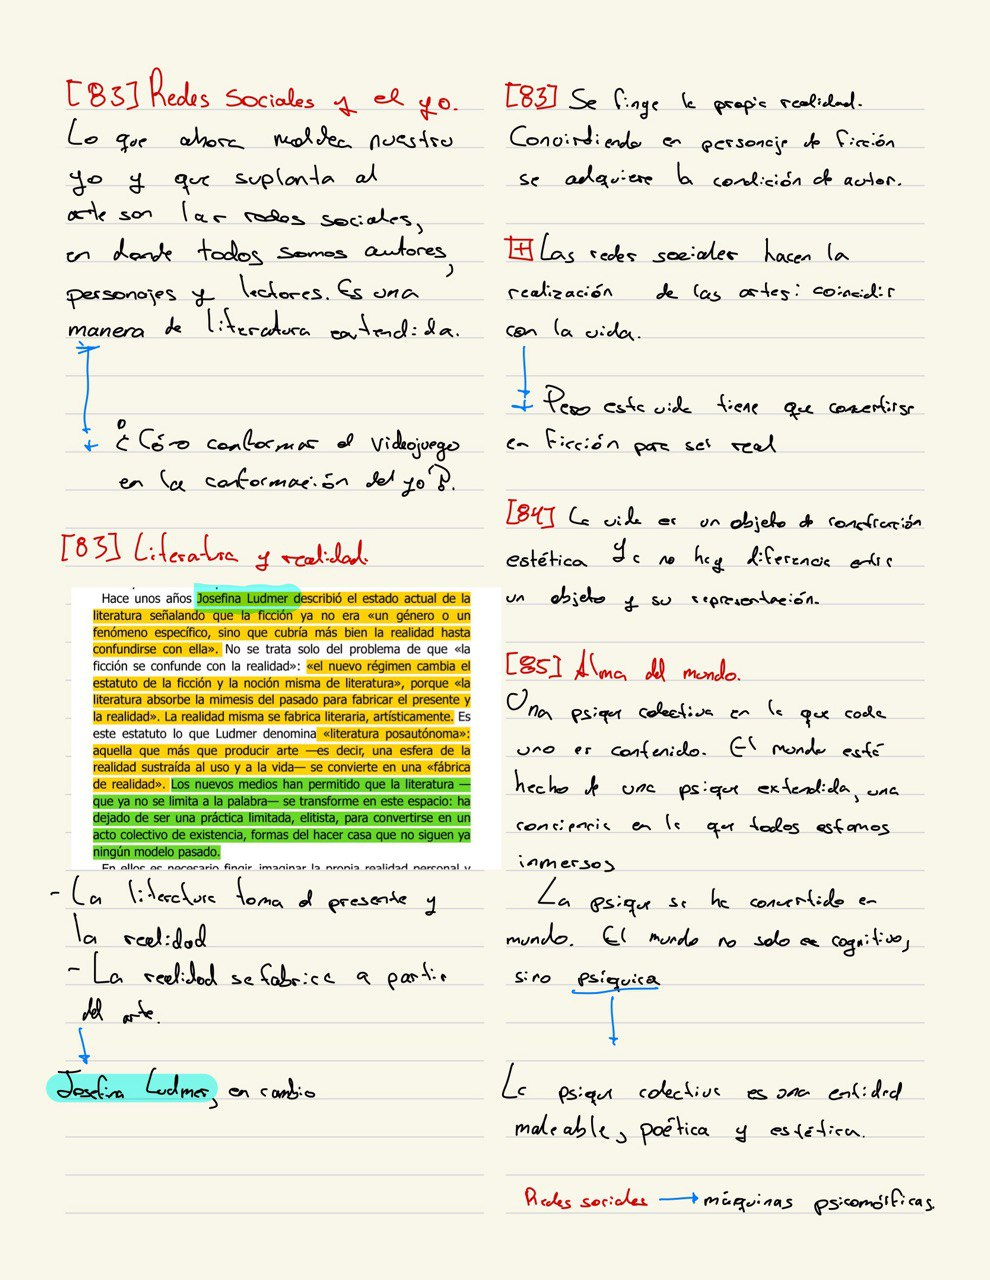 [83] Redes sociales y el yo.
Lo que ahora moldea nuestro
yo y que suplanta al
arte son las redes sociales,
en donde todos somos autores,
personajes y lectores. Es una
manera de literatura extendida.
¿Cómo conformar el videojuego
en la conformación del yo?.
[83] Literatura y realidad.
Hace unos años Josefina Ludmer describió el estado actual de la
literatura señalando que la ficción ya no era «un género o un
fenómeno específico, sino que cubría más bien la realidad hasta
confundirse con ella». No se trata solo del problema de que «la
ficción se confunde con la realidad»: «el nuevo régimen cambia el
estatuto de la ficción y la noción misma de literatura», porque «la
literatura absorbe la mimesis del pasado para fabricar el presente y
la realidad». La realidad misma se fabrica literaria, artísticamente. Es
este estatuto lo que Ludmer denomina «literatura posautónoma»:
aquella que más que producir arte —es decir, una esfera de la
realidad sustraída al uso y a la vida— se convierte en una «fábrica
de realidad». Los nuevos medios han permitido que la literatura —
que ya no se limita a la palabra— se transforme en este espacio: ha
dejado de ser una práctica limitada, elitista, para convertirse en un
acto colectivo de existencia, formas del hacer casa que no siguen ya
ningún modelo pasado.
En ellos es necesario fingir, imaginar la propia realidad personal y
- La literatura toma el presente y
la realidad
- La realidad se fabrica a partir
del arte.
Josefina Ludmer, en cambio
[83] Se finge la propia realidad.
Convirtiendo en personaje de ficción
se adquiere la condición de autor.
+ Las redes sociales hacen la
realización de las artes: coincidir
con la vida.
Pero esta vida tiene que convertirse
en ficción para ser real
[84] La vida es un objeto de construcción
estética Ya no hay diferencia entre
un objeto y su representación.
[85] Alma del mundo.
Una psique colectiva en la que cada
uno es contenido. El mundo está
hecho de una psique extendida, una
conciencia en la que todos estamos
inmersos
La psique se ha convertido en
mundo. El mundo no solo es cognitivo,
sino psíquica
La psique colectiva es una entidad
maleable, poética y estética.
Redes sociales → máquinas psicomórficas.